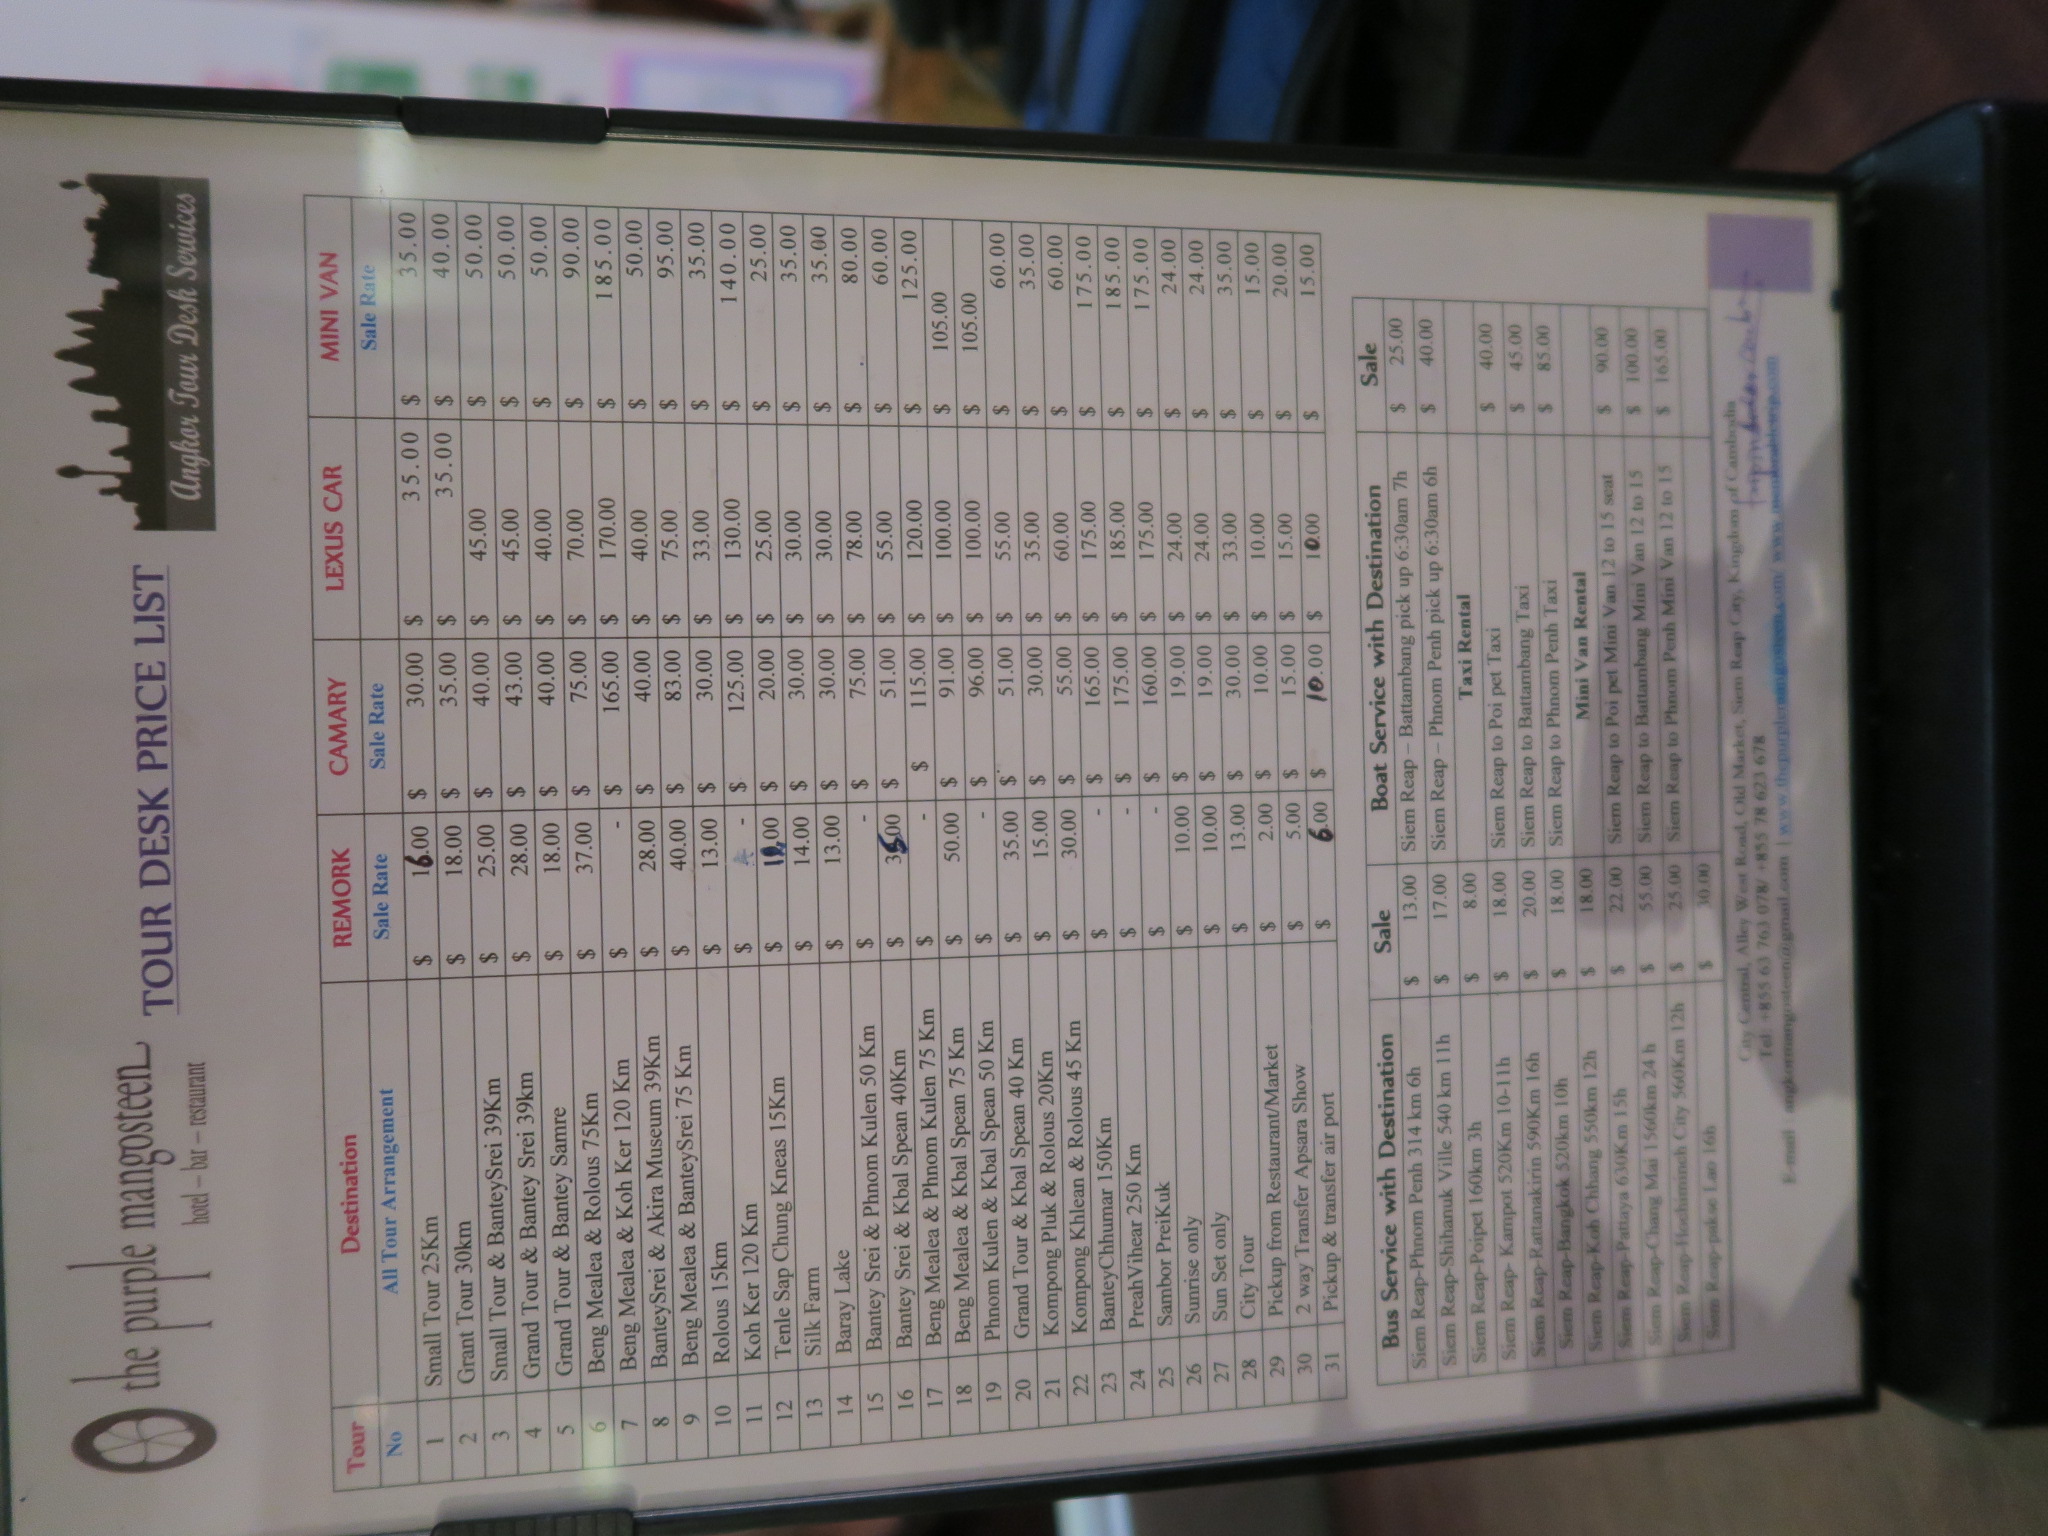 the purple mangosteen
hotel – bar – restaurant
TOUR DESK PRICE LIST
Angkor Tour Desk Services
Tour Destination REMORK CAMARY LEXUS CAR MINI VAN
No All Tour Arrangement Sale Rate Sale Rate Sale Rate
1 Small Tour 25Km $ 16.00 $ 30.00 $ 35.00 $ 35.00
2 Grant Tour 30km $ 18.00 $ 35.00 $ 35.00 $ 40.00
3 Small Tour & BanteySrei 39Km $ 25.00 $ 40.00 $ 45.00 $ 50.00
4 Grand Tour & Bantey Srei 39km $ 28.00 $ 43.00 $ 45.00 $ 50.00
5 Grand Tour & Bantey Samre $ 18.00 $ 40.00 $ 40.00 $ 50.00
6 Beng Mealea & Rolous 75Km $ 37.00 $ 75.00 $ 70.00 $ 90.00
7 Beng Mealea & Koh Ker 120 Km $ - $ 165.00 $ 170.00 $ 185.00
8 BanteySrei & Akira Museum 39Km $ 28.00 $ 40.00 $ 40.00 $ 50.00
9 Beng Mealea & BanteySrei 75 Km $ 40.00 $ 83.00 $ 75.00 $ 95.00
10 Rolous 15km $ 13.00 $ 30.00 $ 33.00 $ 35.00
11 Koh Ker 120 Km $ - $ 125.00 $ 130.00 $ 140.00
12 Tenle Sap Chung Kneas 15Km $ $ 20.00 $ 25.00 $ 25.00
13 Silk Farm $ 14.00 $ 30.00 $ 30.00 $ 35.00
14 Baray Lake $ 13.00 $ 30.00 $ 30.00 $ 35.00
15 Bantey Srei & Phnom Kulen 50 Km $ - $ 75.00 $ 78.00 $ 80.00
16 Bantey Srei & Kbal Spean 40Km $ 35.00 $ 51.00 $ 55.00 $ 60.00
17 Beng Mealea & Phnom Kulen 75 Km $ - $ 115.00 $ 120.00 $ 125.00
18 Beng Mealea & Kbal Spean 75 Km $ 50.00 $ 91.00 $ 100.00 $ 105.00
19 Phnom Kulen & Kbal Spean 50 Km $ - $ 96.00 $ 100.00 $ 105.00
20 Grand Tour & Kbal Spean 40 Km $ 35.00 $ 51.00 $ 55.00 $ 60.00
21 Kompong Pluk & Rolous 20Km $ 15.00 $ 30.00 $ 35.00 $ 35.00
22 Kompong Khlean & Rolous 45 Km $ 30.00 $ 55.00 $ 60.00 $ 60.00
23 BanteyChhumar 150Km $ - $ 165.00 $ 175.00 $ 175.00
24 PreahVihear 250 Km $ - $ 175.00 $ 185.00 $ 185.00
25 Sambor PreiKuk $ - $ 160.00 $ 175.00 $ 175.00
26 Sunrise only $ 10.00 $ 19.00 $ 24.00 $ 24.00
27 Sun Set only $ 10.00 $ 19.00 $ 24.00 $ 24.00
28 City Tour $ 13.00 $ 30.00 $ 33.00 $ 35.00
29 Pickup from Restaurant/Market $ 2.00 $ 10.00 $ 10.00 $ 15.00
30 2 way Transfer Apsara Show $ 5.00 $ 15.00 $ 15.00 $ 20.00
31 Pickup & transfer air port $ 6.00 $ 10.00 $ 10.00 $ 15.00
Bus Service with Destination Sale Boat Service with Destination Sale
Siem Reap-Phnom Penh 314 km 6h $ 13.00 Siem Reap – Battambang pick up 6:30am 7h $ 25.00
Siem Reap-Shihanuk Ville 540 km 11h $ 17.00 Siem Reap – Phnom Penh pick up 6:30am 6h $ 40.00
Siem Reap-Poipet 160km 3h $ 8.00 Taxi Rental
Siem Reap- Kampot 520Km 10-11h $ 18.00 Siem Reap to Poi pet Taxi $ 40.00
Siem Reap-Rattanakirin 590Km 16h $ 20.00 Siem Reap to Battambang Taxi $ 45.00
Siem Reap-Bangkok 520km 10h $ 18.00 Siem Reap to Phnom Penh Taxi $ 85.00
Siem Reap-Koh Chhang 550km 12h $ 18.00 Mini Van Rental
Siem Reap-Pattaya 630Km 15h $ 22.00 Siem Reap to Poi pet Mini Van 12 to 15 seat $ 90.00
Siem Reap-Chang Mai 1560km 24 h $ 55.00 Siem Reap to Battambang Mini Van 12 to 15 $ 100.00
Siem Reap-Hochiminch City 560Km 12h $ 25.00 Siem Reap to Phnom Penh Mini Van 12 to 15 $ 165.00
Siem Reap-pakse Lao 16h $ 30.00
City Central, Alley West Road, Old Market, Siem Reap City, Kingdom of Cambodia
Tel: +855 63 763 078/ +855 78 623 678
E-mail: angkormangosteen@gmail.com |